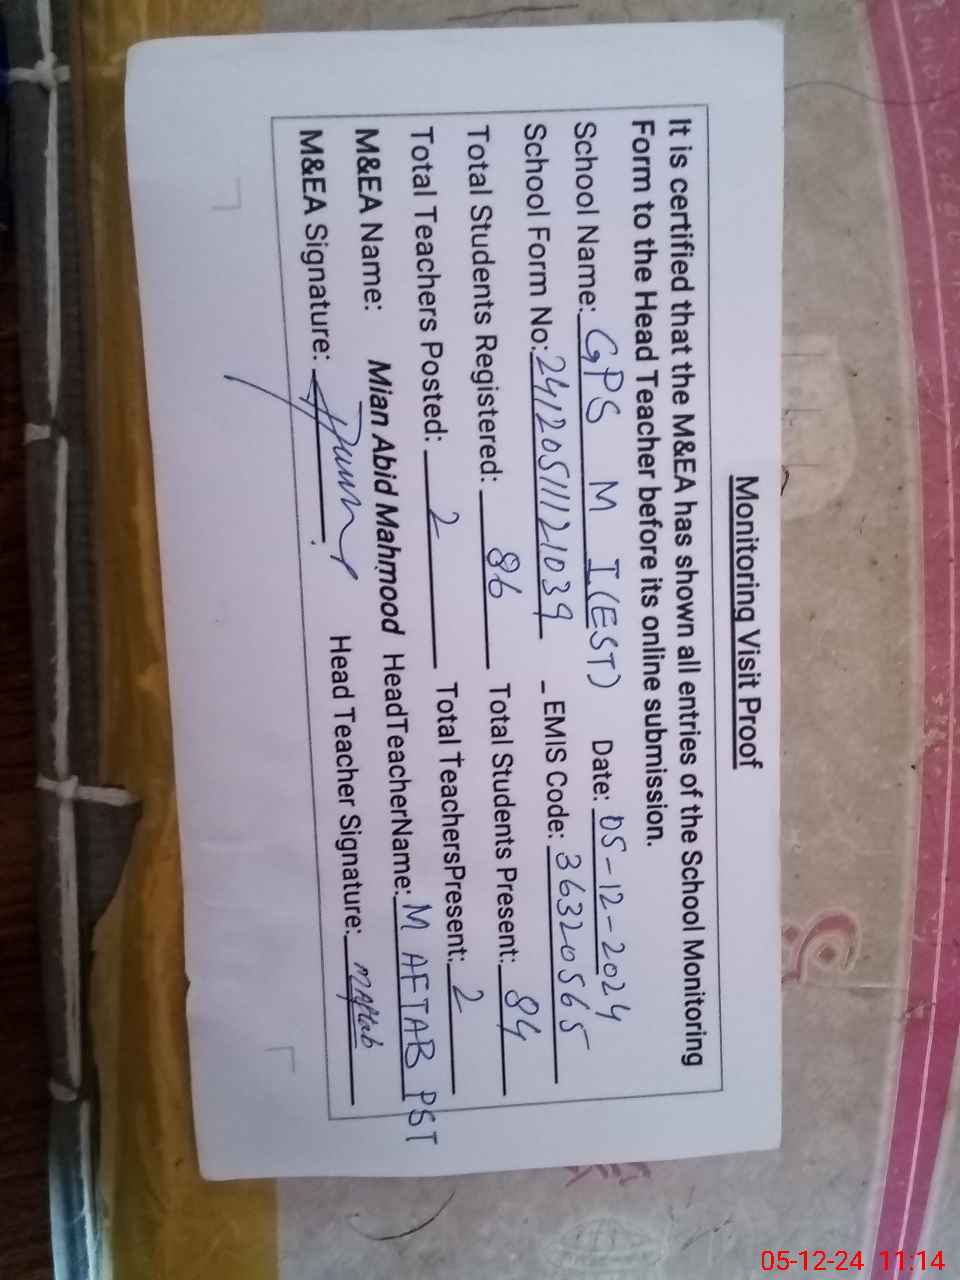 Monitoring Visit Proof
It is certified that the M&EA has shown all entries of the School Monitoring
Form to the Head Teacher before its online submission.
School Name: GPS M I(EST) Date: 05-12-2024
School Form No: 24120511121039 - EMIS Code: 36320565
Total Students Registered: 86 Total Students Present: 84
Total Teachers Posted: 2 Total TeachersPresent: 2
M&EA Name: Mian Abid Mahmood HeadTeacherName: M AFTAB PST
M&EA Signature: Head Teacher Signature: M Aftab
05-12-24 11:14